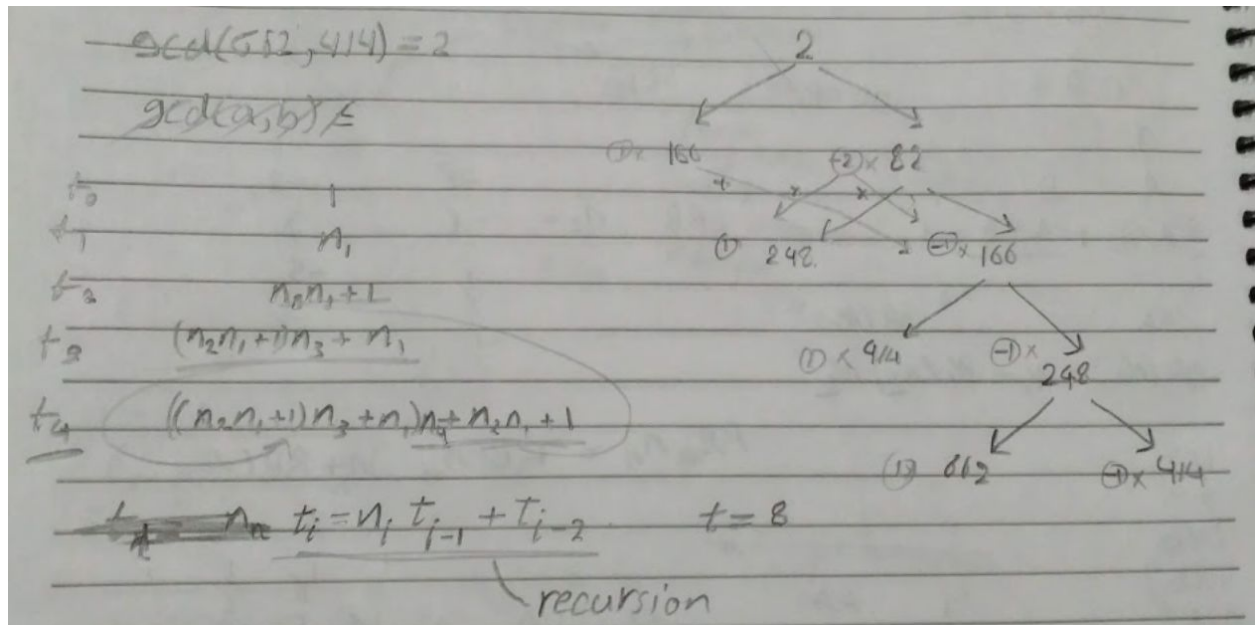 gcd(662, 414) = 2
gcd(a, b) =
t₀ 1
t₁ n₁
t₂ n₂n₁+1
t₃ (n₂n₁+1)n₃ + n₁
t₄ ((n₂n₁+1)n₃+n₁)n₄+n₂n₁+1
tᵢ = nᵢ tᵢ₋₁ + tᵢ₋₂
t = 8
recursion
2
① × 166 (-2) × 82
+ × ×
① 248 (-1) × 166
① × 414 (-1) × 248
① 662 (-1) × 414